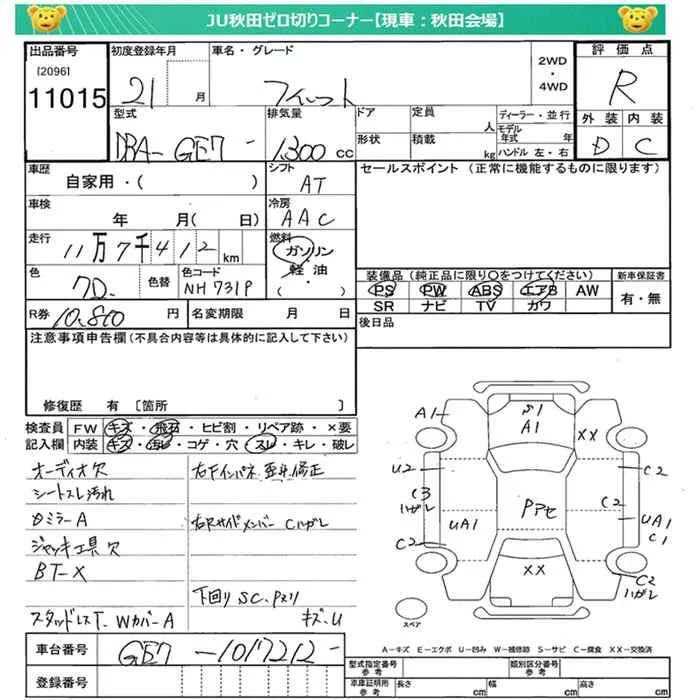 JU秋田ゼロ切りコーナー【現車：秋田会場】
出品番号
[2096]
11015
初度登録年月
21 月
車名・グレード
フィット
2WD
・
4WD
評価点
R
型式
DBA- GE7-
排気量
1,300 cc
ドア
定員
人
ディーラー・並行
モデル年式 年
形状
積載
kg
ハンドル 左・右
外装 内装
D C
車歴
自家用・( )
シフト
AT
車検
年 月( 日)
冷房
AAC
走行
11万7千412 km
燃料
ガソリン
・
軽・油
・
( )
色
色替
色コード
NH731P
セールスポイント (正常に機能するものに限ります)
装備品(純正品に限り○をつけてください)
新車保証書
PS PW ABS エアB AW
SR ナビ TV カワ
有・無
R券 10,860 円
名変期限 月 日
後日品
注意事項申告欄(不具合内容等は具体的に記入して下さい)
修復歴 有 〔箇所 〕
検査員 FW キズ・飛石・ヒビ割・リペア跡・×要
記入欄 内装 キズ・汚れ・コゲ・穴・スレ・キレ・破レ
オーディオ欠
シートスレ汚れ
ジャッキ工具欠
BT-X
スタッドレスT. WカバーA
右Rサイドメンバー Cハガレ
キズ・U
A1
A1
XX
U2
C2
C3
ハガレ
C2
UA1
Pアセ
UA1
C1
C2
XX
C2
ハガレ
スペア
A－キズ E－エクボ U－凹み W－補修跡 S－サビ C－腐食 XX－交換済
車台番号
GE7 - 1017212 -
登録番号
型式指定番号
参考
類別区分番号
参考
車庫証明用
参考
長さ cm
幅 cm
高さ cm